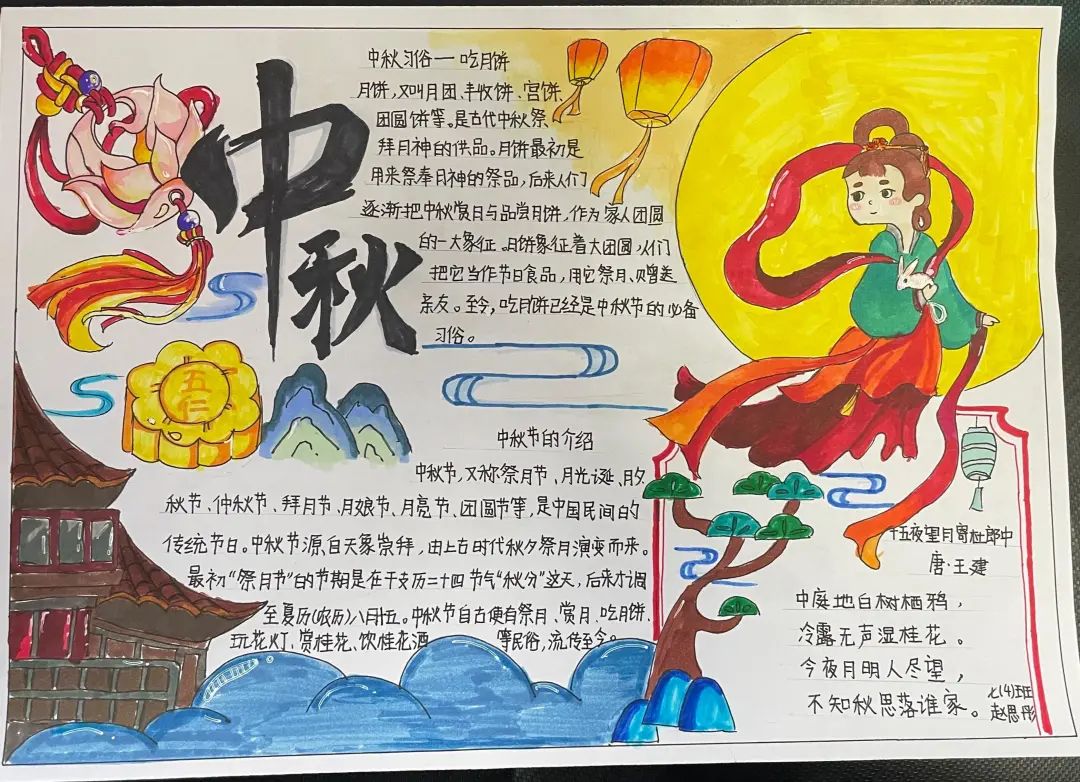 中秋
中秋习俗一吃月饼
月饼,又叫月团、丰收饼、宫饼、
团圆饼等。是古代中秋祭
拜月神的供品。月饼最初是
用来祭奉月神的祭品,后来人们
逐渐把中秋赏月与品尝月饼,作为家人团圆
的一大象征。月饼象征着大团圆,人们
把它当作节日食品,用它祭月、赠送
亲友。至今,吃月饼已经是中秋节的必备
习俗。
五仁
中秋节的介绍
中秋节,又称祭月节、月光诞、月夕、
秋节、仲秋节、拜月节、月娘节、月亮节、团圆节等,是中国民间的
传统节日。中秋节源自天象崇拜,由上古时代秋夕祭月演变而来。
最初“祭月节”的节期是在干支历二十四节气“秋分”这天,后来才调
至夏历(农历)八月十五。中秋节自古便有祭月、赏月、吃月饼、
玩花灯、赏桂花、饮桂花酒等民俗,流传至今。
十五夜望月寄杜郎中
唐·王建
中庭地白树栖鸦,
冷露无声湿桂花。
今夜月明人尽望,
不知秋思落谁家。
七(4)班
赵思彤